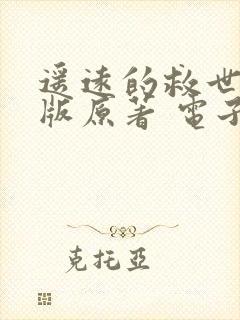 遥远的救世
版原著 電子
克托亞